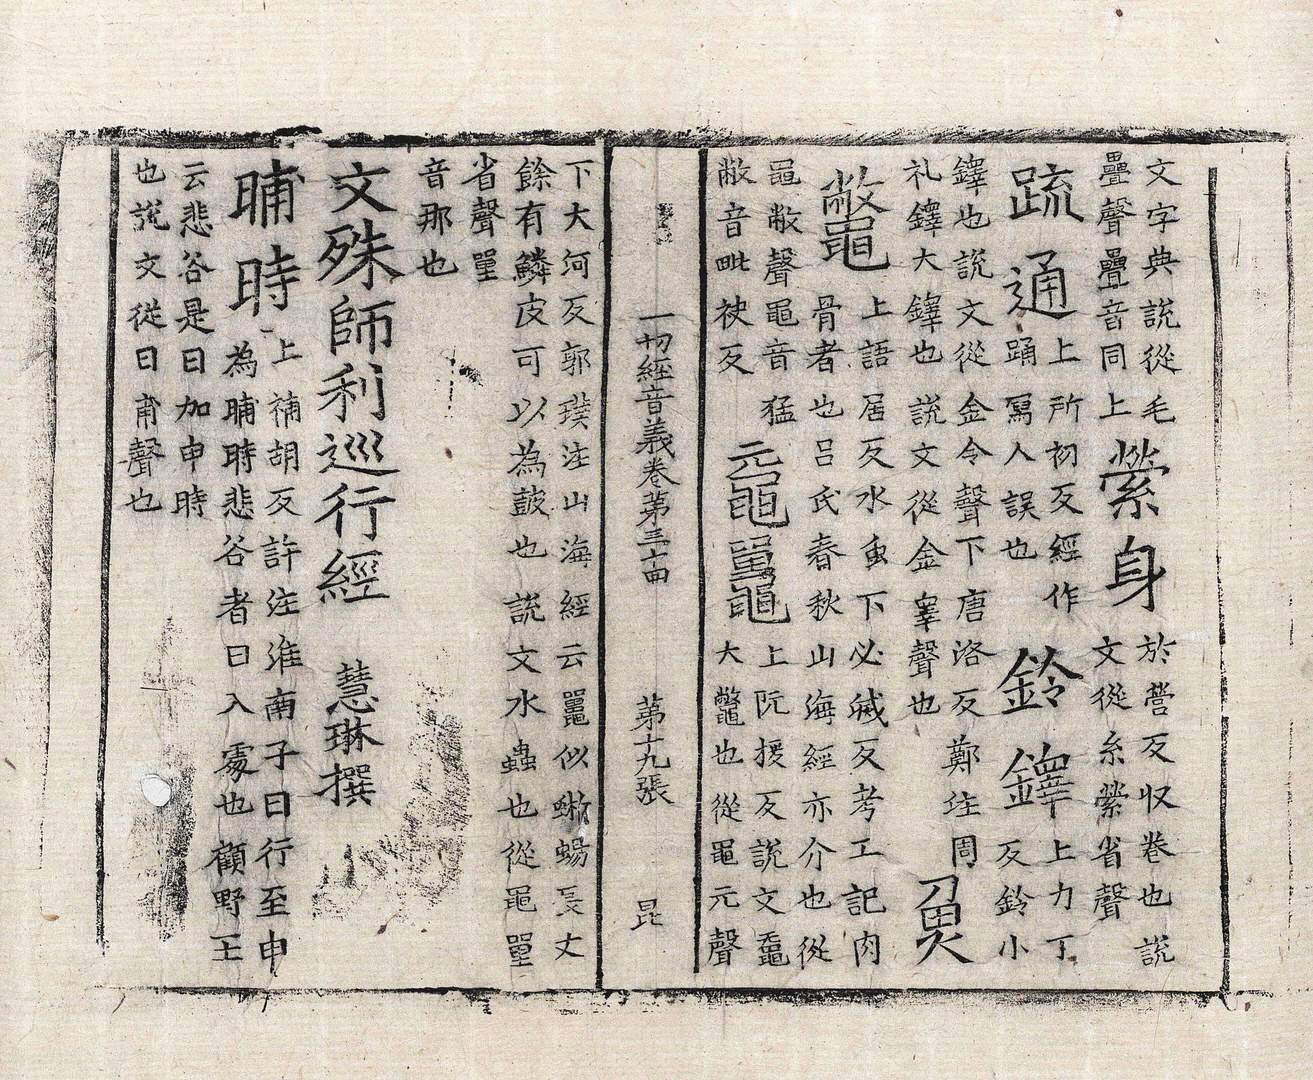 文字典說從毛
疊聲疊音同上
縈身
於營反収卷也說
文從糸縈省聲
疏通
上所初反經作
踊寫人誤也
鈴鐸
上力丁
反鈴小
鐸也說文從金令聲下唐洛反鄭注周
礼鐸大鐸也說文從金睪聲也
魚
鼈
上語居反水虫下必烕反考工記肉
骨者也呂氏春秋山海經亦介也從
黽敝聲黽音猛
敝音毗袂反
黿鼉
上阮援反說文黿
大鼈也從黽元聲
一切經音義卷第三十四 第十九張 昆
下大河反郭璞注山海經云鼉似蜥蜴長丈
餘有鱗皮可以為鼓也說文水蟲也從黽單
省聲單
音那也
文殊師利巡行經 慧琳撰
晡時
上補胡反許注淮南子曰行至申
為晡時悲谷者日入處也顧野王
云悲谷是日加申時
也說文從日甫聲也